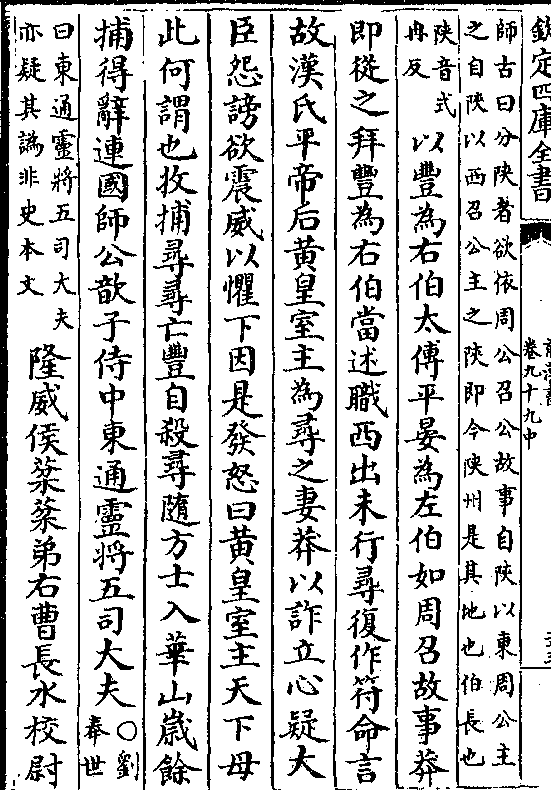 欽定四庫全書
卷九十九中
師古曰分陜者欲依周公召公故事自陜以東周公主
之自陜以西召公主之陜即今陜州是其地也伯長也
陜音式
冉反
以豐為右伯太傅平晏為左伯如周召故事莽
即從之拜豐為右伯當述職西出未行尋復作符命言
故漢氏平帝后黃皇室主為尋之妻莽以詐立心疑大
臣怨謗欲震威以懼下因是發怒曰黃皇室主天下母
此何謂也收捕尋尋亡豐自殺尋隨方士入華山歲餘
捕得辭連國師公歆子侍中東通靈將五司大夫
○劉
奉世
曰東通靈將五司大夫
亦疑其譌非史本文
隆威侯棻棻弟右曹長水校尉